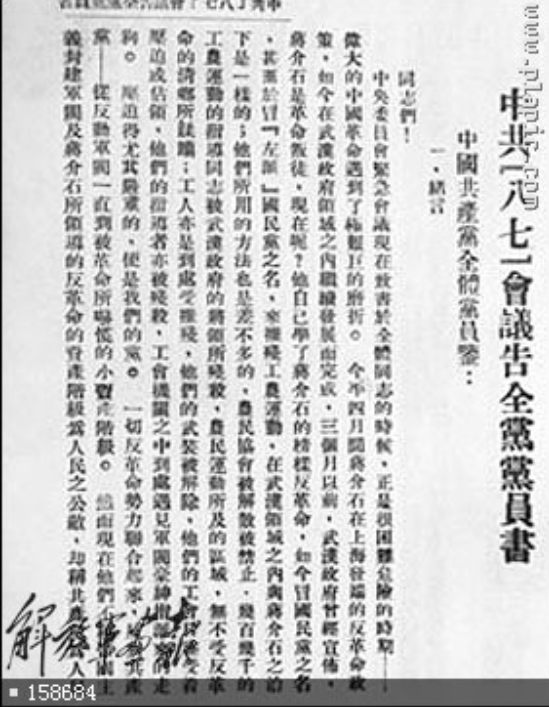 中共「八七」會議告全黨黨員書
中國共產黨全體黨員鑒：
一、緒言
同志們！
中央委員會緊急會議現在致書於全體同志的時候，正是很困難危險的時期——
偉大的中國革命遇到了極艱巨的磨折。今年四月間蔣介石在上海發端的反革命政
策，如今在武漢政府領域之內繼續發展而完成，三個月以前，武漢政府曾經宣佈，
蔣介石是革命叛徒，現在呢？他自己學了蔣介石的榜樣反革命，如今冒國民黨之名
，甚至於冒『左派』國民黨之名，來摧殘工農運動，在武漢領域之內與蔣介石之治
下是一樣的；他們所用的方法也是差不多的，農民協會被解散被禁止，幾百幾千的
工農運動的指導同志被武漢政府的將領所殘殺，農民運動所及的區域，無不受反革
命的清鄉所蹂躪；工人亦是到處受摧殘，他們的武裝被解除，他們的工會
壓迫或佔領，他們的指導者亦被殘殺，工會機關之中到處遇見軍閥豪紳 走
狗。壓迫得尤其厲害的，便是我們的黨。一切反革命勢力聯合起來， 共產
黨——從反動軍閥一直到被革命所嚇慌的小資產階級。然而現在他們
義封建軍閥及蔣介石所領導的反革命的資產階級為人民之公敵，却稱共產
解放軍報
158684
www.plapic.com